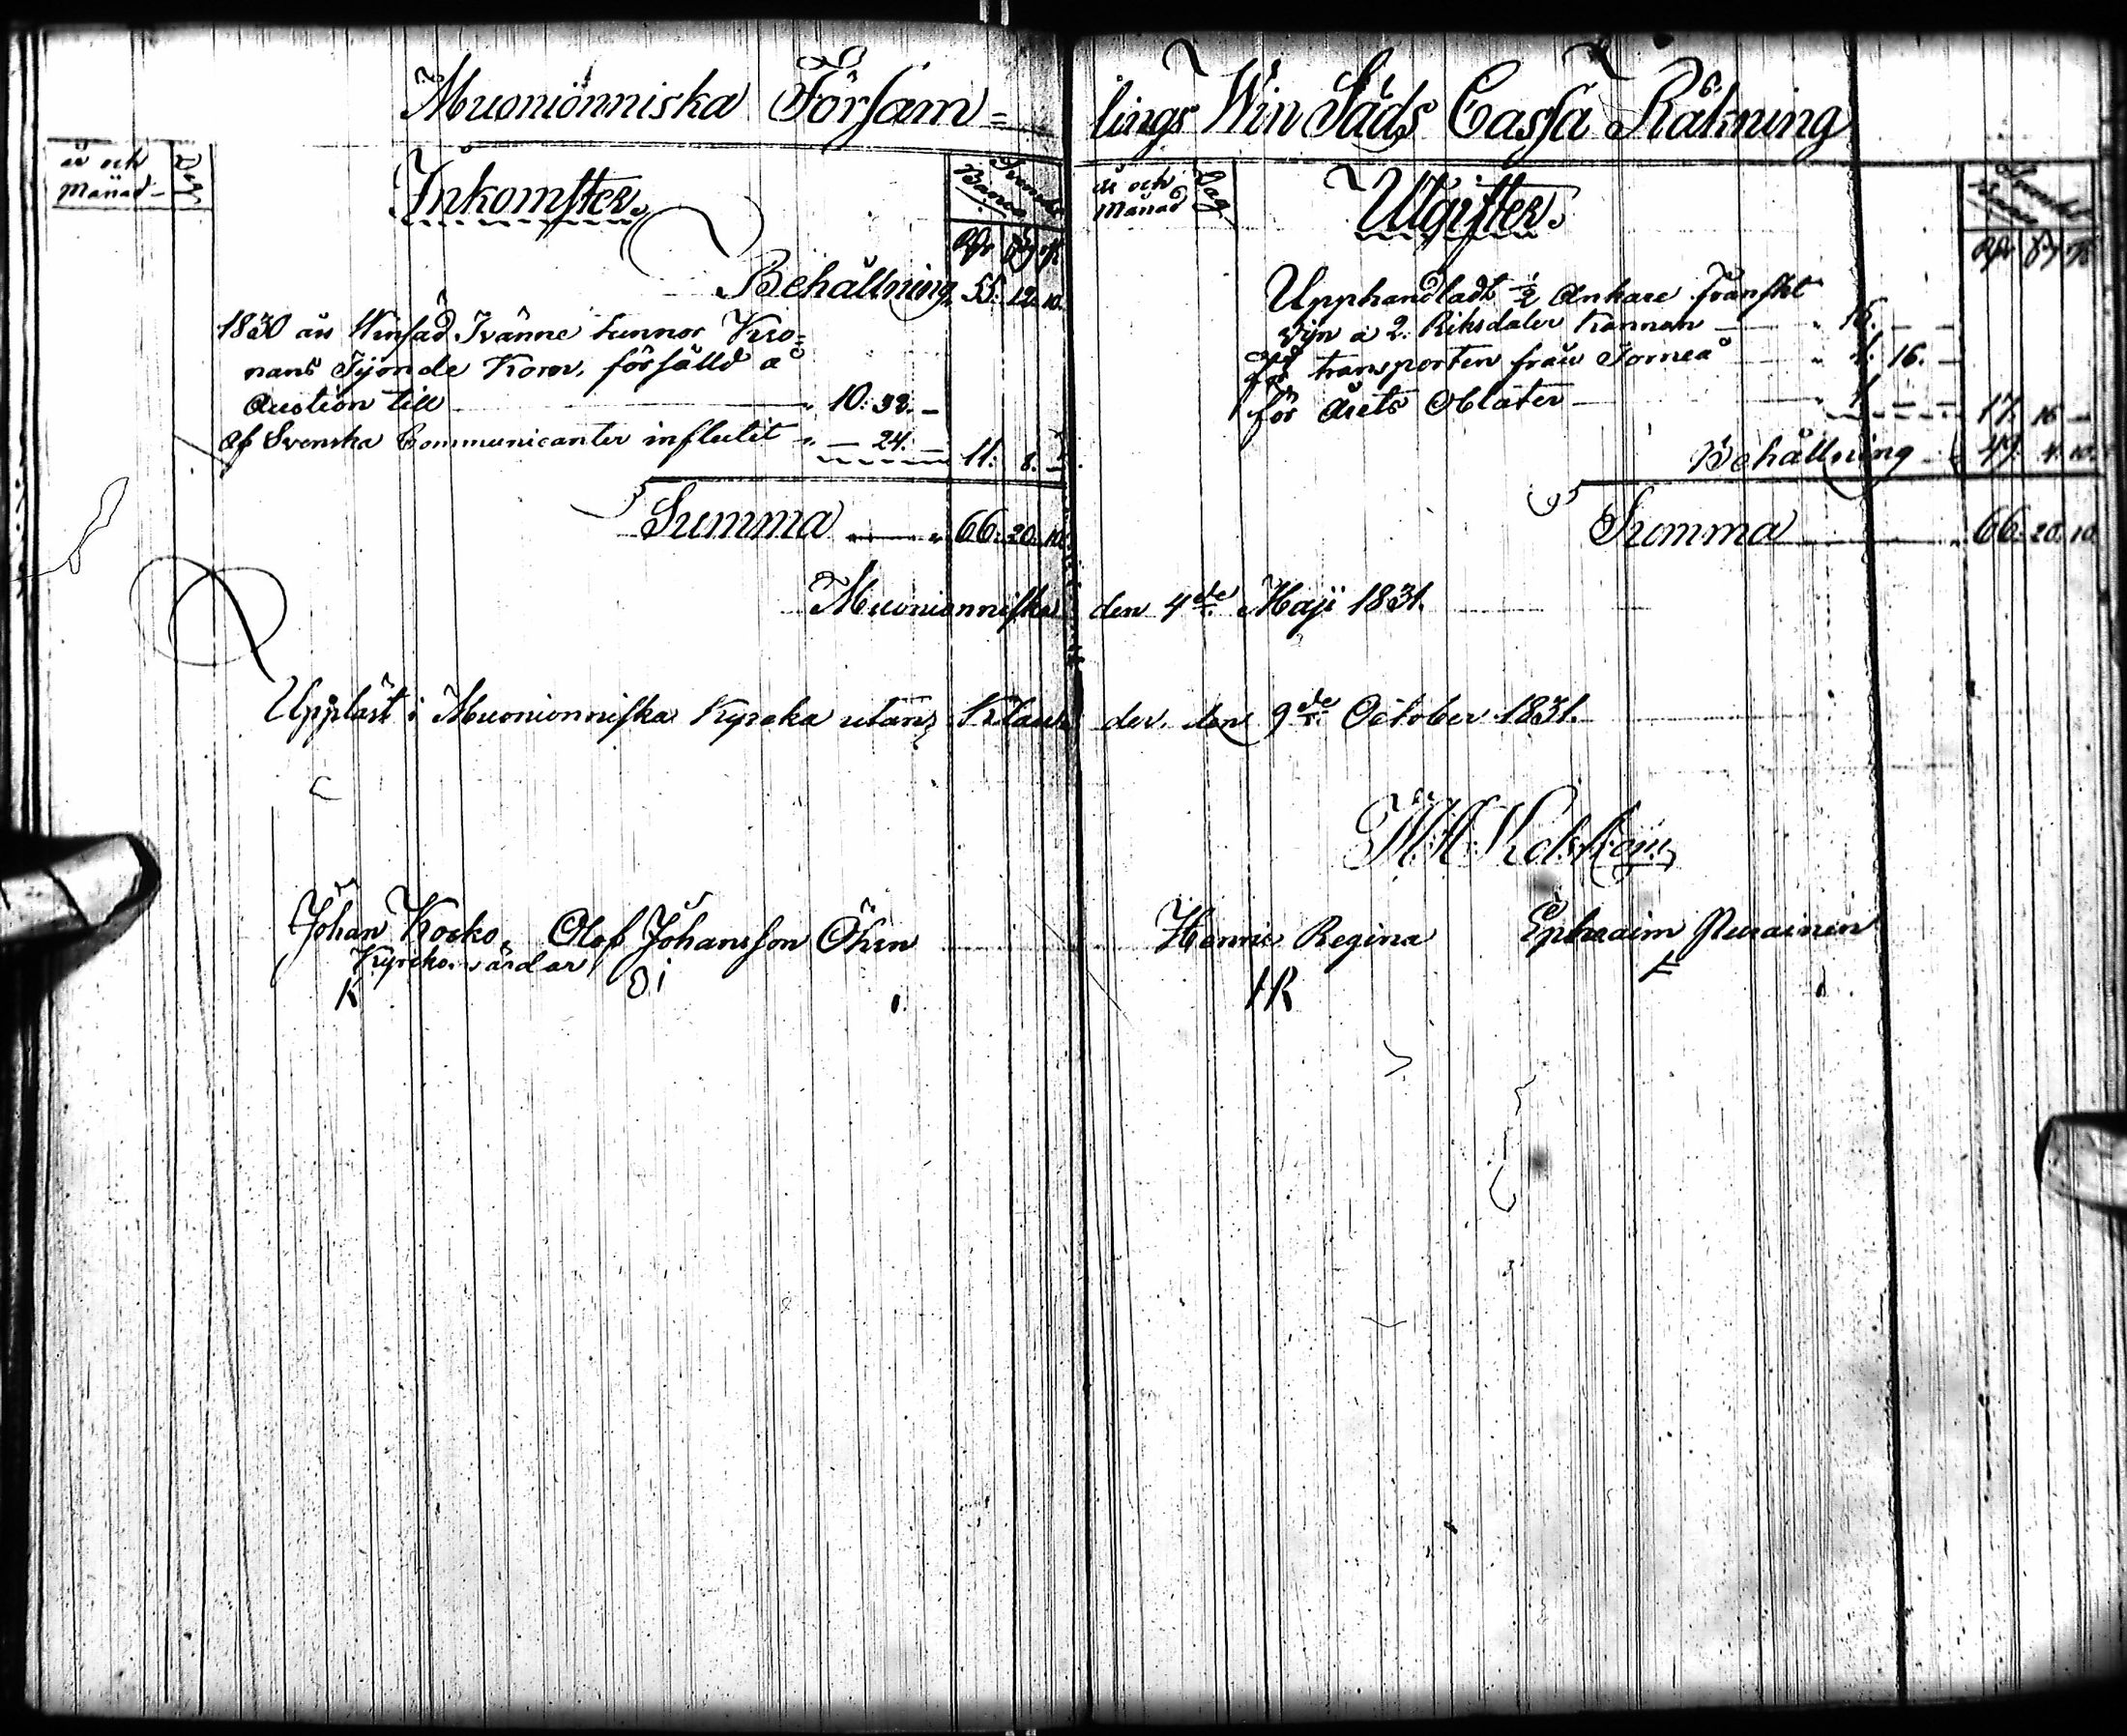 Muonionniska Församlings Win Säds Cassa Räkning
år och
Månad
Dag
Inkomster
Svenska
Banco
Rdr ß rst
Behållning 55. 12. 10.
1830 års Winsäd Tvänne tunnor Kro=
nans Tijonde Korn, försåld à
Auction till 10: 32. –
Af Svenska Communicanter influtit – 24. – 11: 8. –
Summa 66. 20. 10.
år och
Månad
Dag
Utgifter
Svenska
Banco
Rdr ß rst
Upphandladt ½ Ankare Franskt
vijn a 2. Riksdaler Kannan 15. – –
för transporten från Torneå 1. 16. –
för Årets Oblater 1. – – 17. 16 –
Behållning 49. 4. 10.
Summa 66. 20. 10.
Muonionniska den 4de Maji 1831.
Uppläst i Muonionniska Kyrcka utan Klander, den 9de October 1831.
Johan Kocko Olof Johansson Öhrn Henric Regina Ephraim
Kyrckovärdar
K OI HR E